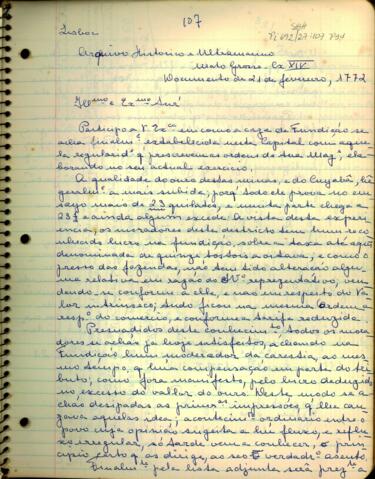 107
Lisboa
SBH
Pi 692/27:107 P34
Arquivo Historico e Ultramarino
Mato Grosso. Cx XIV
Documento de 21 de fevereiro, 1772
Participo a V. Exca em como a caza de Fundição se
acha finalmte estabelecida nesta Capital com aque-
la regularide q prescrevem as ordens de Sua Mage, ela-
borando no seu actual exercicio.
A qualidade do ouro destas minas, e do Cuyabá, hé
geralmte a mais subida; porq todo ele prova no en-
sayo mais de 23 quilates, a muita parte chega a
23½ e ainda algum excede. A vista desta ex per-
iencia, os moradores deste districto sem hum reco-
nhecido lucro na fundição, sobre a taxa até aqui
denominada de quinze tostoes a oitava, e como o
preço das fazendas, não tem tido alteração algu-
ma relativa em razão do Vor representativo, ven-
dendo-se conforme a elle, e não em respto do Va-
lor intrinseco, tudo ficou na mesma Ordem a
respto do comercio, e conforme a tarifa reduzida.
Persuadidos deste conhecimto, todos os mora-
dores se achão já hoje satisfeitos, achando na
Fundição hum moderador da carestia, ao mes-
mo tempo, q huma compensação em parte do tri-
buto; como fora manifesto, pelo lucro deduzido
no excesso do vallor do ouro. Deste modo se a-
chão desipadas as primeras impressões, q lhe cau-
zava aquelas ideas; acontecimto ordinario entre o
povo cuja opinião sugeita a hú fluxo, e reflu-
xo irregular, só tarde vem a conhecer, o prin-
cipio certo q as dirige, ao seo verdadro asento.
Finalmte pela lista adjunta será prezte a